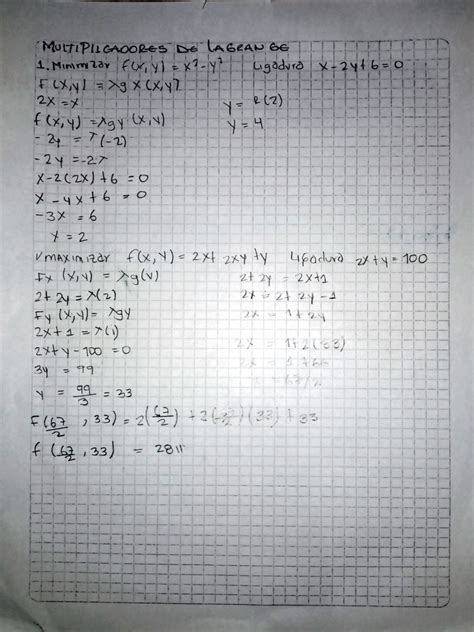 MULTIPLICADORES DE LAGRANGE
1. Minimizar f(x,y) = x² - y² Ligadura x - 2y + 6 = 0
F(x,y) = λg x (x,y)
2x = x y = 2(2)
f(x,y) = λgy (x,y) y = 4
- 2y = λ(-2)
- 2y = -2λ
x - 2(2x) + 6 = 0
x - 4x + 6 = 0
-3x = 6
x = 2
Maximizar f(x,y) = 2x + 2xy + y Ligadura 2x + y = 100
Fx (x,y) = λg(v) 2 + 2y = 2x + 1
2 + 2y = λ(2) 2x = 2 + 2y - 1
Fy (x,y) = λgy 2x = 1 + 2y
2x + 1 = λ(1) 2x = 1 + 2(33)
2x + y - 100 = 0 2x = 1 + 66
3y = 99 = 67/2
y = 99/3 = 33
F(67/2, 33) = 2(67/2) + 2(67/2)(33) + 33
f(67/2, 33) = 2811